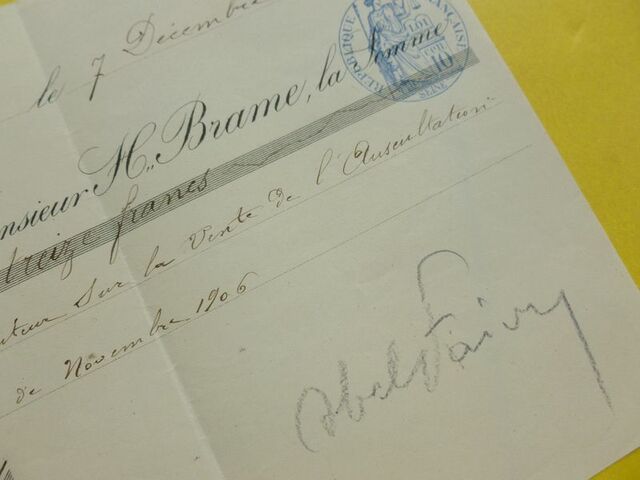 le 7 Décembre
RÉPUBLIQUE FRANÇAISE
10
SEINE
onsieur H. Brame, la Somme
treize francs
uteur sur la Vente de l'Auscultation
de Novembre 1906
Abel Faivre